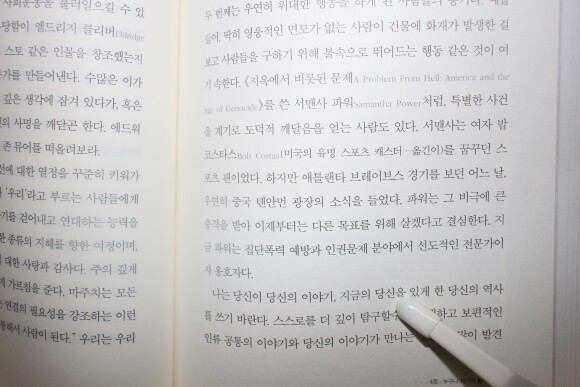 사회운동을 불러일으킬 수 있
당함이 엘드리지 클리버Eldridge
스토 같은 인물을 창조했는지
가를 만들어낸다. 수많은 이가
깊은 생각에 잠겨 있다가, 혹은
의 사명을 깨닫곤 한다. 에드워
존 듀어를 떠올려보라.
선에 대한 열정을 꾸준히 키워가
'우리'라고 부르는 사람들에게
기를 걷어내고 연대하는 능력을
한 종류의 지혜를 향한 여정이며,
대한 사랑과 감사다. 주의 깊게
가르침을 준다. 마주치는 모든
는 연결의 필요성을 강조하는 이런
통해서 사람이 된다." 우리는 우리
두 번째는 우연히 위대한 행동을 하게 된 사람들의
들어, 딱히 영웅적인 면모가 없는 사람이 건물에 화재가 발생한 걸
보고 사람들을 구하기 위해 불속으로 뛰어드는 행동 같은 것이 여
기 속한다. 《지옥에서 비롯된 문제A Problem From Hell: America and the
Age of Genocide》를 쓴 서맨사 파워Samantha Power처럼, 특별한 사건
을 계기로 도덕적 깨달음을 얻는 사람도 있다. 서맨사는 여자 밥
코스타스Bob Costas(미국의 유명 스포츠 캐스터-옮긴이)를 꿈꾸던 스
포츠 팬이었다. 하지만 애틀랜타 브레이브스 경기를 보던 어느 날,
우연히 중국 톈안먼 광장의 소식을 들었다. 파워는 그 비극에 큰
충격을 받아 이제부터는 다른 목표를 위해 살겠다고 결심한다. 지
금 파워는 집단폭력 예방과 인권문제 분야에서 선도적인 전문가이
자 옹호자다.
나는 당신이 당신의 이야기, 지금의 당신을 있게 한 당신의 역사
를 쓰기 바란다. 스스로를 더 깊이 탐구할수 하고 보편적인
인류 공통의 이야기와 당신의 이야기가 만나는 많이 발견
4장·누구나